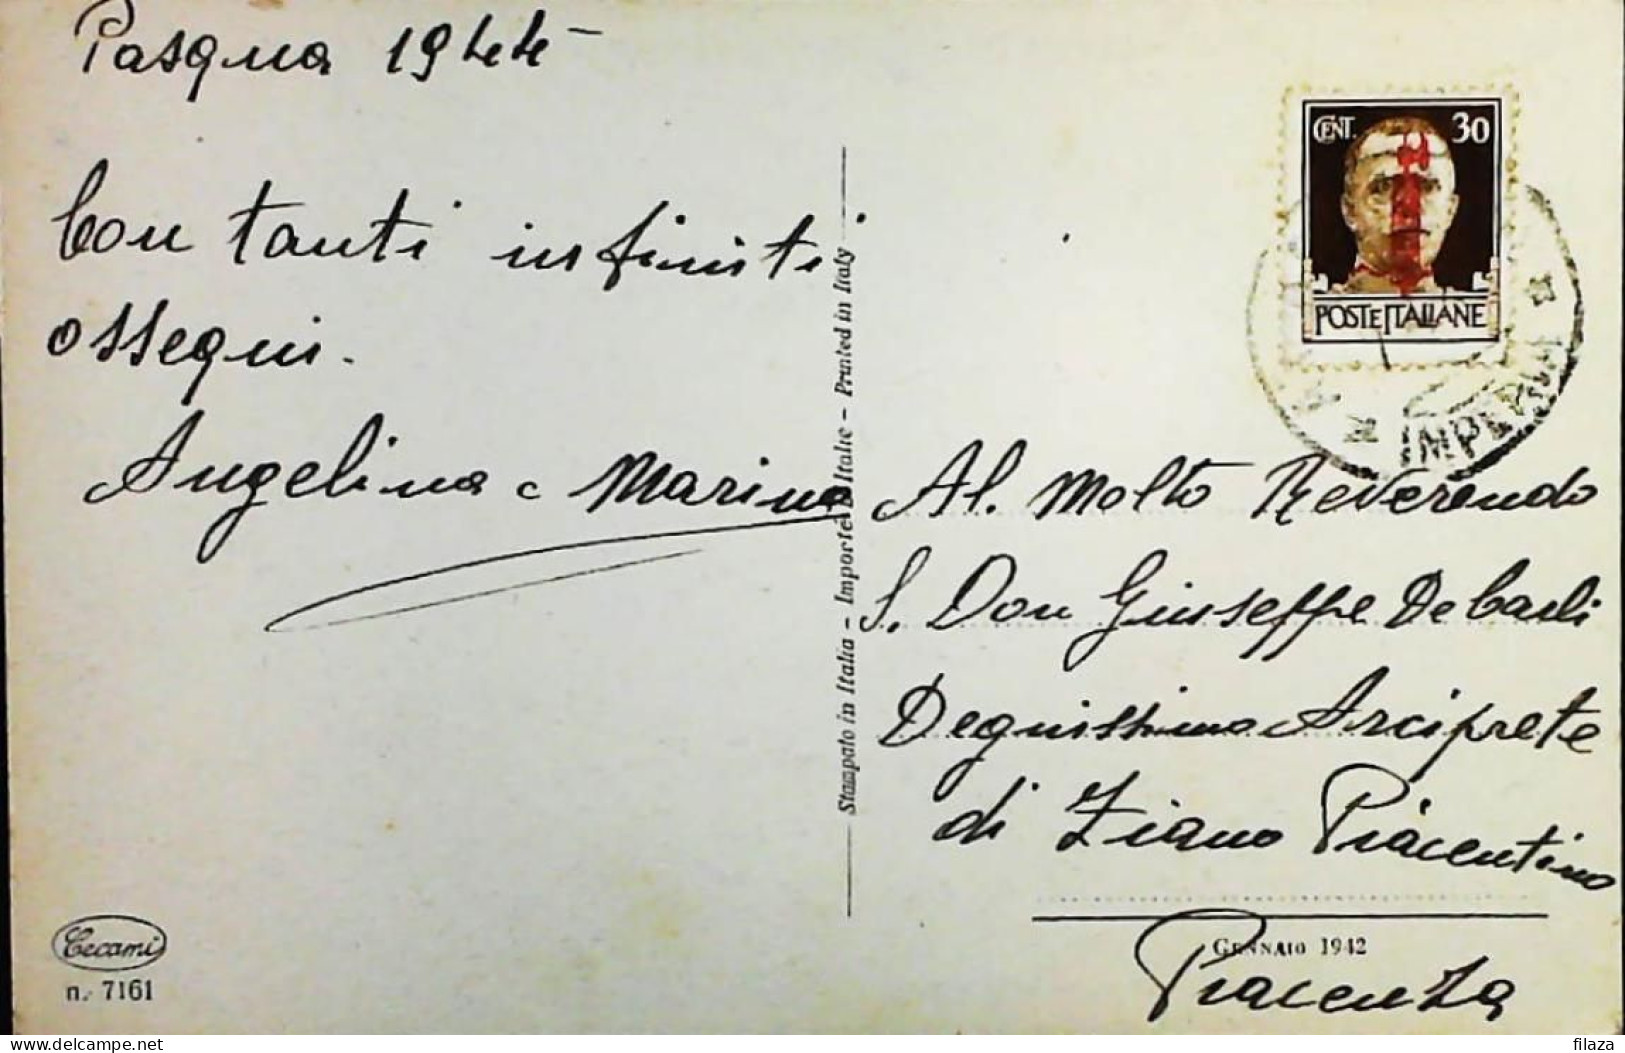 Pasqua 1944-
Con tanti infiniti
ossequi.
Angelina e Marina
Cecami
n. 7161
Stampato in Italia - Importé d'Italie - Printed in Italy
CENT. 30
POSTE ITALIANE
IMPERIA
Al. Molto Reverendo
S. Don Giuseppe De Carli
Degnissimo Arciprete
di Ziano Piacentino
GENNAIO 1942
Piacenza
delcampe.net
filaza